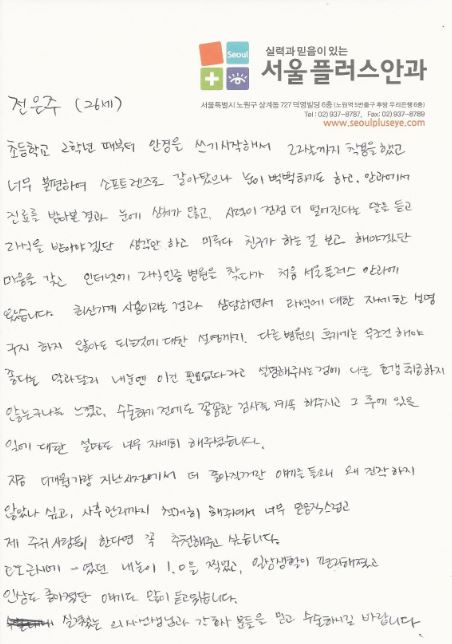 Seoul
실력과 믿음이 있는
서울플러스안과
서울특별시 노원구 상계동 727 덕영빌딩 6층 (노원역 5번출구 후방 우리은행 6층)
Tel : 02) 937-8787, Fax : 02) 937-8789
www.seoulpluseye.com
전은주 (26세)
초등학교 2학년 때부터 안경을 쓰기시작해서 22살까지 착용을 했고
너무 불편하여 소프트렌즈로 갈아탔으나 눈이 뻑뻑하기도 하고. 안과에서
진료를 받아본결과 눈에 상처가 많고, 시력이 점점 더 떨어진다는 말을 듣고
라식을 받아야겠단 생각만 하고 미루다 친구가 하는 걸 보고 해야겠단
마음을 갖고 인터넷에 라식인증 병원을 찾다가 처음 서울플러스 안과에
왔습니다. 최신기계 사용이라는 점과 상담하면서 라섹에 대한 자세한 설명
굳이 하지 않아도 되는것에 대한 설명까지. 다른병원의 후기에는 무조건 해야
좋다는 말과달리 내눈엔 이건 필요없다라고 설명해주시는점에 나를 호갱취급하지
않는구나를 느꼈고, 수술하기 전에도 꼼꼼한 검사를 계속 해주시고 그 후에 있을
일에 대한 설명도 너무 자세히 해주셨습니다.
지금 5개월가량 지난시점에서 더 좋아진거란 얘기를 들으니 왜 진작 하지
않았나 싶고, 사후관리까지 철저히 해주셔서 너무 믿음직스럽고
제 주위사람들이 한다면 꼭 추천해주고 싶습니다.
고도근시에 -였던 내눈이 1.0을 찍었고, 일상생활이 편리해졌고
인상도 좋아졌단 얘기도 많이 듣고있습니다.
실력있는 의사선생님과 간호사 분들을 믿고 수술하시길 바랍니다.